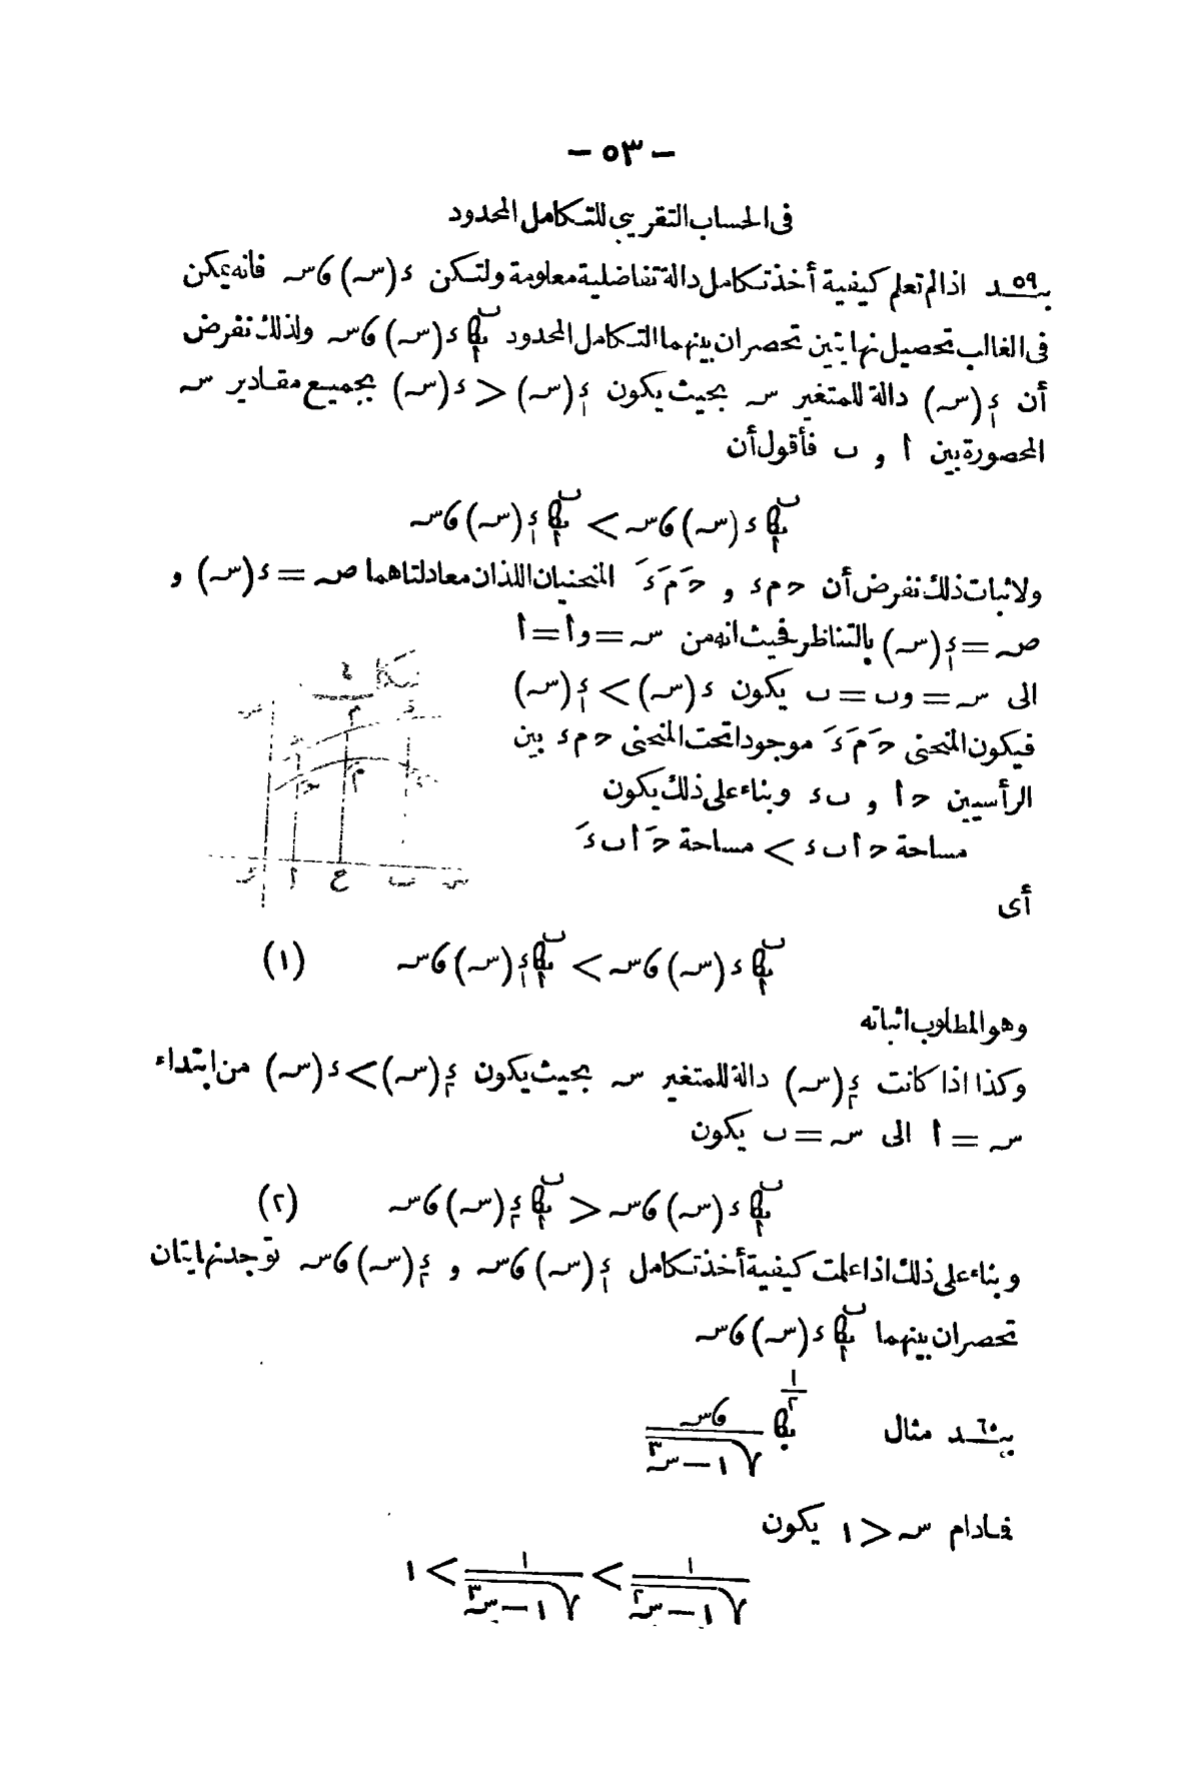 — ٥٣ —
فى الحساب التقريبى للتكامل المحدود
بند ٥٩ اذا لم تعلم كيفية أخذ تكامل دالة تفاضلية معلومة ولتكن د(سـ)ڡاسـ فانه يمكن
فى الغالب تحصيل نهايتين تحصران بينهما التكامل المحدود د(سـ) سـ ولذلك نفرض
أن د١(سـ) دالة للمتغير سـ بحيث يكون د١(سـ) < د(سـ) بجميع مقادير سـ
المحصورة بين ا و ب فأقول أن
د(سـ) سـ > د١(سـ) سـ
ولاثبات ذلك نفرض أن حمء و حَمَءَ المنحنيان اللذان معادلتاهما صـ = د(سـ) و
صـ = د١(سـ) بالتناظر فحيث انه من سـ = وأ = أ
الى سـ = وب = ب يكون د(سـ) > د١(سـ)
فيكون المنحنى حَمَءَ موجودا تحت المنحنى حمء بين
الرأسيين حأ و بء وبناء على ذلك يكون
مساحة حأبء > مساحة حَأبءَ
أى
د(سـ) سـ > د١(سـ) سـ (١)
وهو المطلوب اثباته
وكذا اذا كانت د٢(سـ) دالة للمتغير سـ بحيث يكون د٢(سـ) > د(سـ) من ابتداء
سـ = أ الى سـ = ب يكون
د(سـ) سـ < د٢(سـ) سـ (٢)
وبناء على ذلك اذا علمت كيفية أخذ تكامل د١(سـ) سـ و د٢(سـ) سـ توجد نهايتان
تحصران بينهما د(سـ) سـ
بند ٦٠ مثال سـ / √(١ − سـ٣)
فادام سـ < ١ يكون
١ / √(١ − سـ٢) > ١ / √(١ − سـ٣) > ١